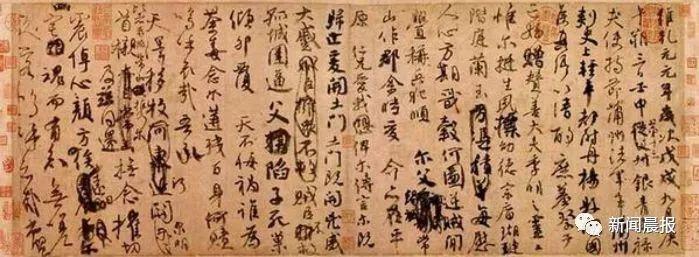 維乾元元年歲次戊戌九月庚
午朔三日壬申第十三叔銀青光祿
夫使持節蒲州諸軍事蒲州
刺史上輕車都尉丹楊縣開國
侯真卿以清酌庶羞祭于
亡姪贈贊善大夫季明之靈曰
惟爾挺生夙標幼德宗廟瑚璉
階庭蘭玉每慰
人心方期戩穀何圖逆賊閒
釁稱兵犯順爾父竭誠常
山作郡余時受命亦在平
原仁兄愛我俾爾傳言爾既
歸止爰開土門土門既開凶威
大蹙賊臣不救
孤城圍逼父陷子死巢
傾卵覆天不悔禍誰為
荼毒念爾遘殘百身何贖
嗚呼哀哉吾承
天澤移牧河關泉明
首櫬及茲同還撫念摧切
震悼心顏方俟遠日
宅魂而有知無嗟
久客嗚呼哀哉尚饗
新闻晨报